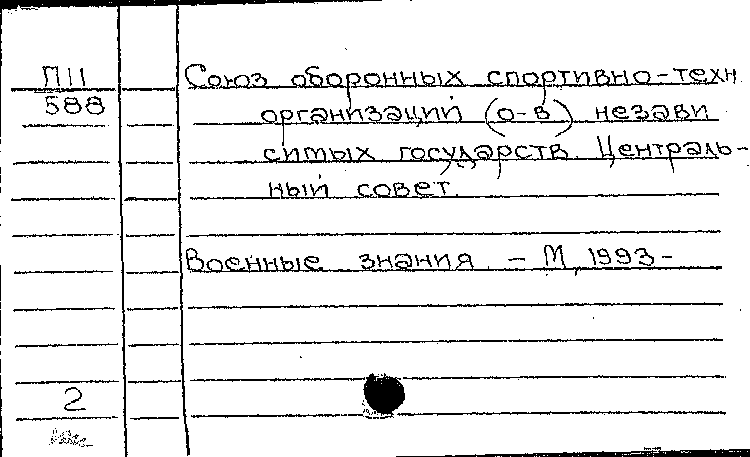 П11
588
Союз оборонных спортивно-техн
организаций (о-в) незави
симых государств. Централь-
ный совет.
Военные знания - М, 1993-
2